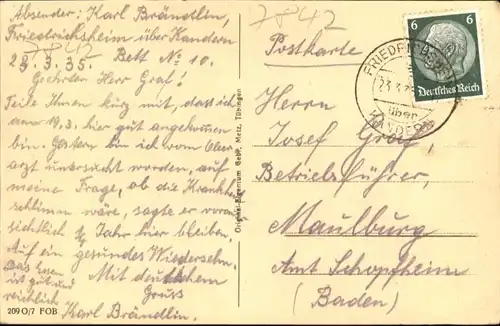 Absender: Karl Brändlin,
Friedrichsheim über Kandern
7842
Bett No 10.
23.3.35.
Geehrter Herr Graf!
Teile Ihnen kurz mit, dass ich
am 19.3. hier gut angekommen
bin. Gestern bin ich vom Ober
arzt untersucht worden, auf
meine Frage, ob die Krankh.
schlimm wäre, sagte er voraus
sichtlich ½ Jahr hier bleiben.
Auf ein gesundes Wiedersehn.
Das Essen
ist gut und
reichlich
Mit deutschem
Gruss
Karl Brändlin.
209 O/7 FOB
Original-Eigentum Gebr. Metz, Tübingen
7842
Postkarte
6 6
Deutsches Reich
23.3.35
über
KANDERN
Herrn
Josef Graf,
Betriebsführer
Maulburg
Amt Schopfheim
(Baden)